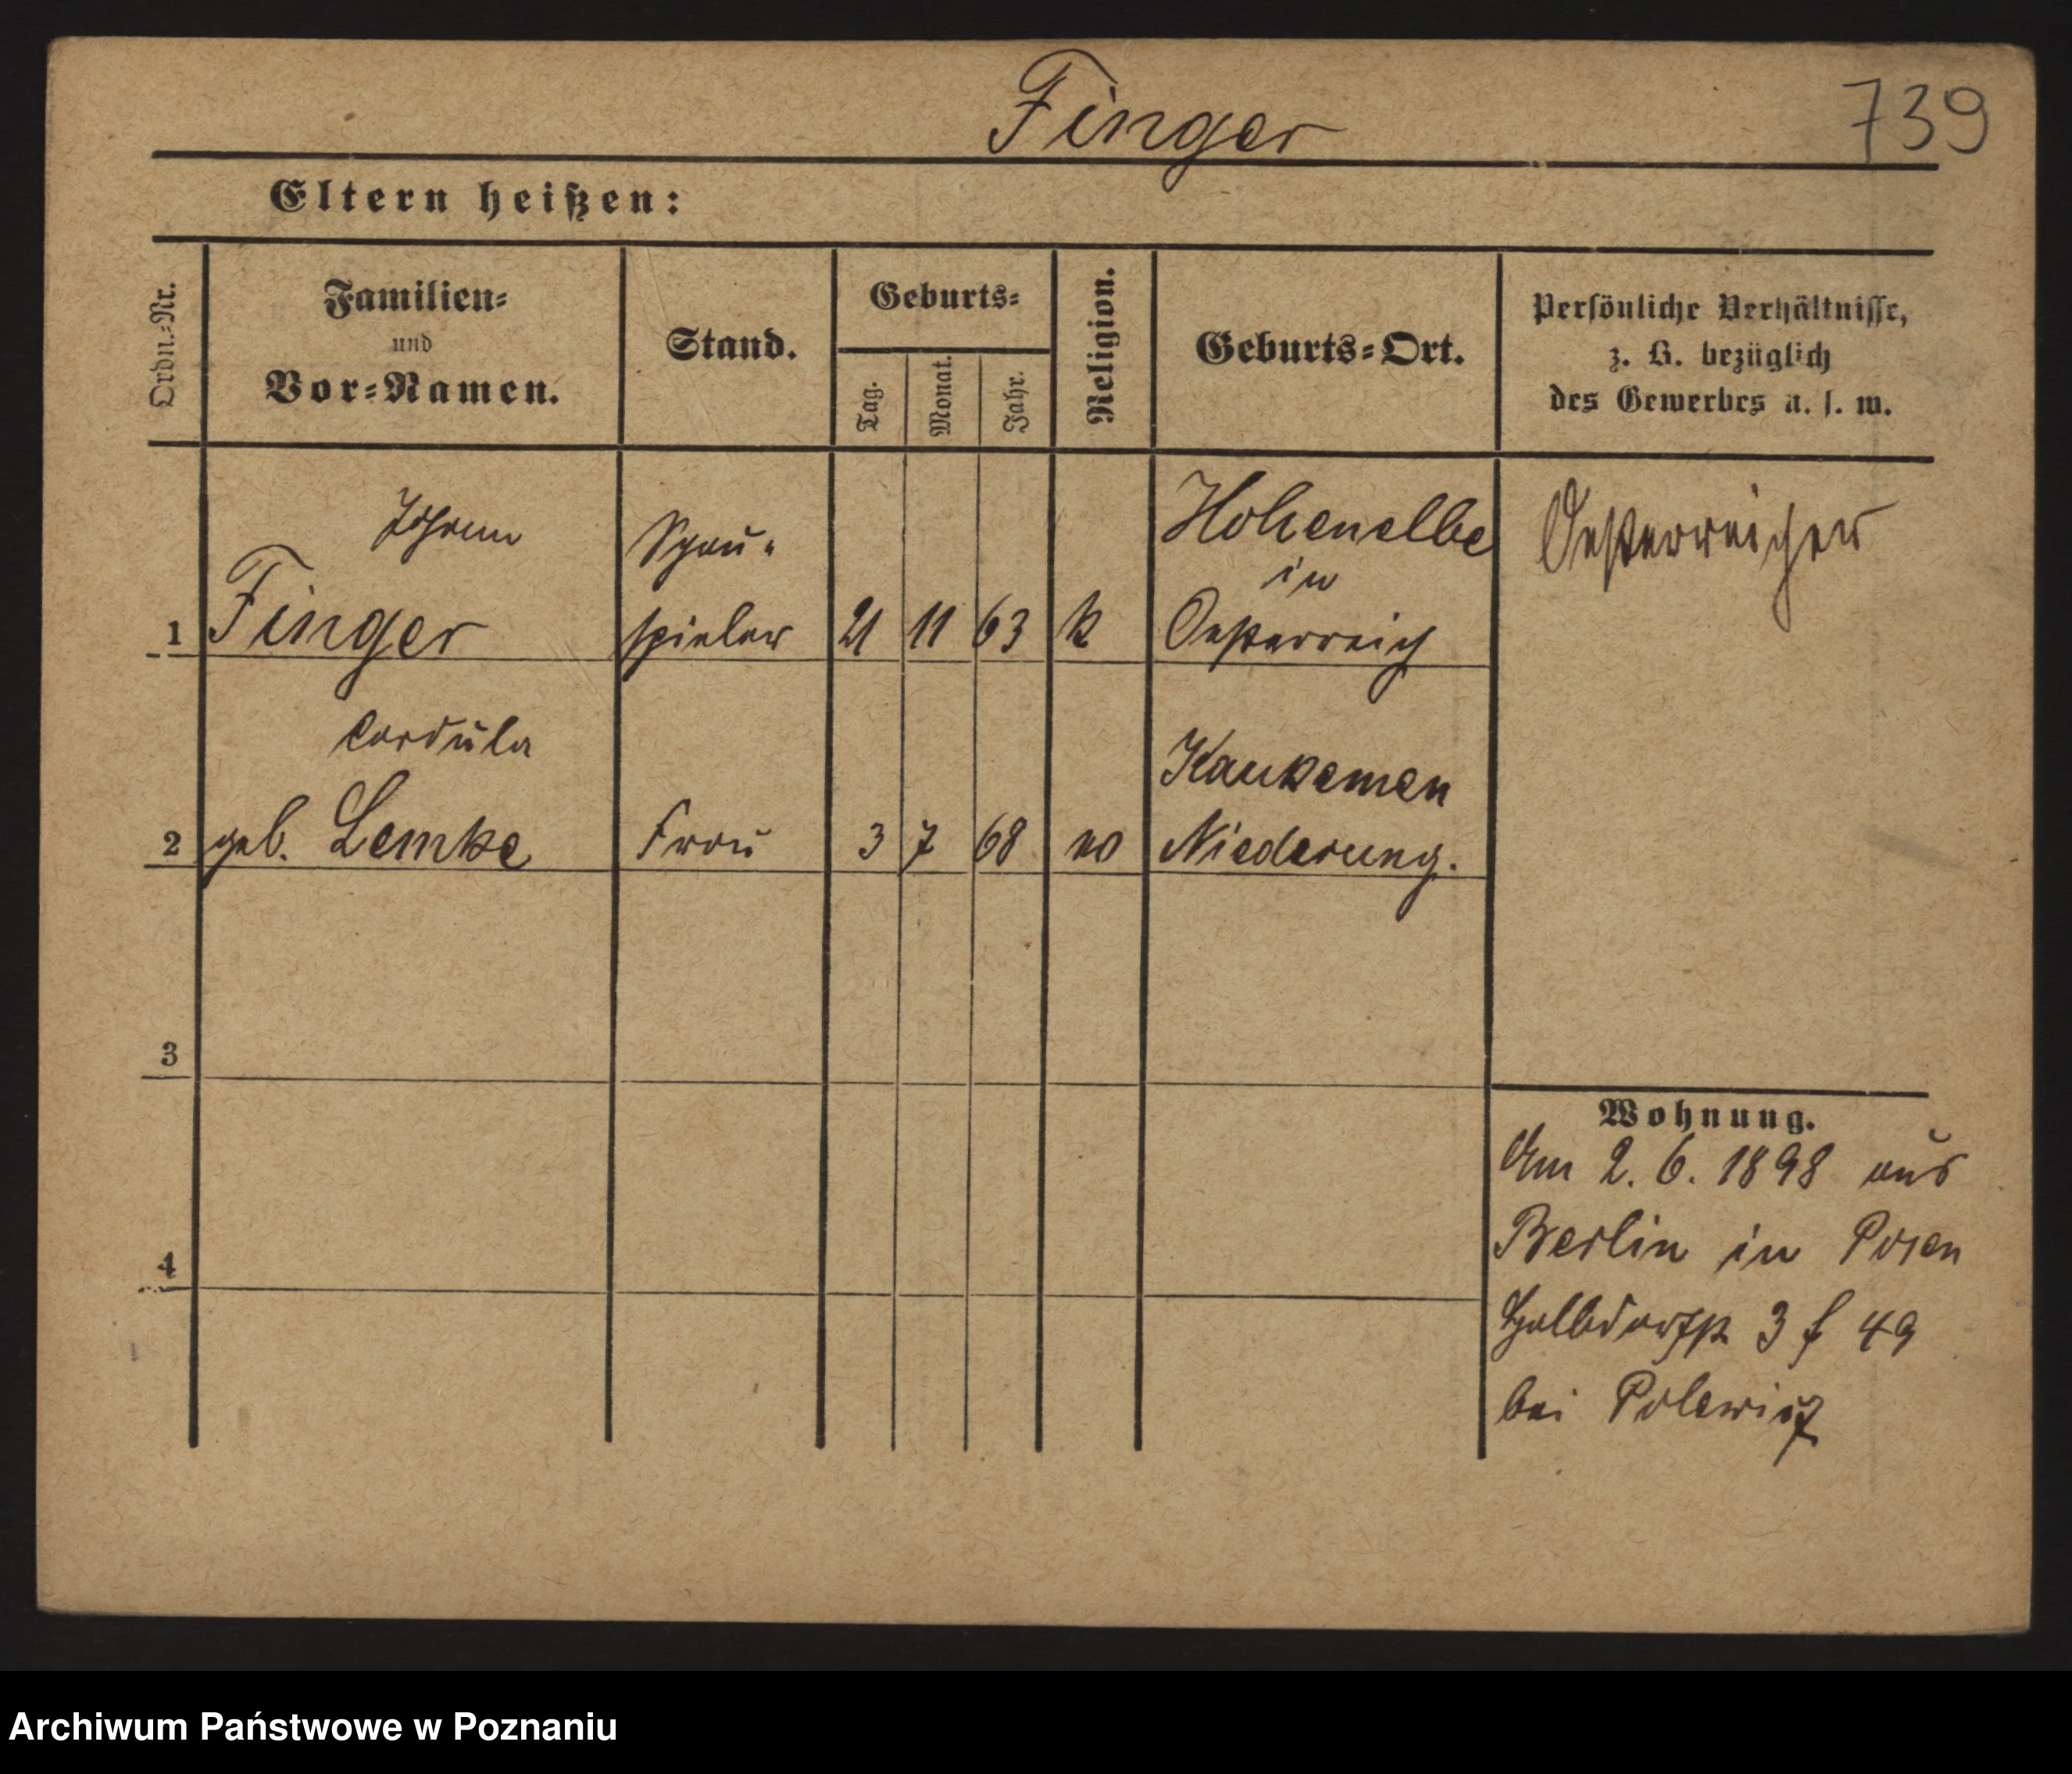 Finger
739
Eltern heißen:
Ordn.-Nr.
Familien-
und
Vor-Namen.
Stand.
Geburts-
Tag.
Monat.
Jahr.
Religion.
Geburts-Ort.
Persönliche Verhältnisse,
z. B. bezüglich
des Gewerbes u. s. w.
Johann
Schau-
Hohenelbe
Oesterreicher
in
1 Finger spieler 21 11 63 k Oesterreich
Cordula
Kaukemen
2 geb. Lemke Frau 3 7 68 Niederung.
3
4
Wohnung.
Am 2. 6. 1898 aus
Berlin in Posen
Halbdorfstr 3 f 49
bei
Archiwum Państwowe w Poznaniu